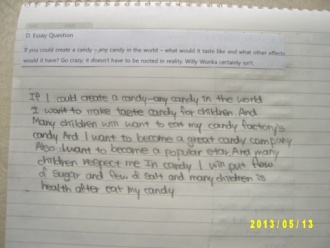 D. Essay Question
If you could create a candy – any candy in the world – what would it taste like and what other effects
would it have? Go crazy, it doesn't have to be rooted in reality. Willy Wonka certainly isn't.
If I could create a candy-any candy in the world
I want to make taste candy for children. And
Many children will want to eat my candy factory's
candy And I want to become a great candy company
Also I want to become a popular star. And many
children respect me In candy I will put few
of sugar and few of salt and many children is
health after eat my candy
2013/05/13